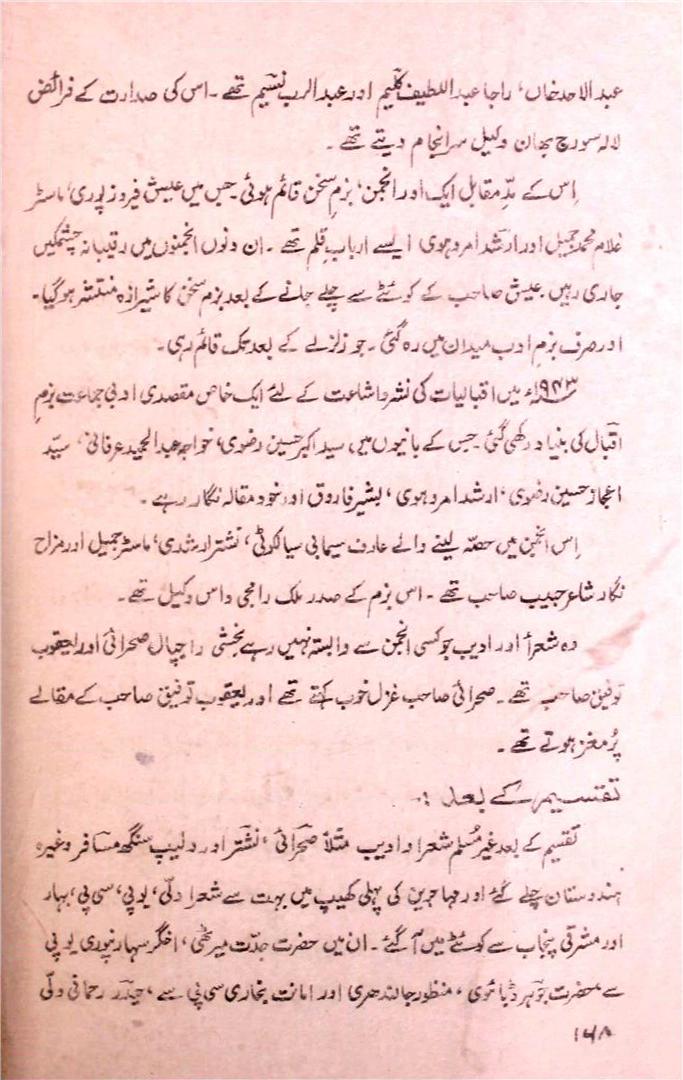 عبدالاحد خاں، راجا عبداللطیف کلیم اور عبدالرب نسیم تھے۔ اس کی صدارت کے فرائض
لالہ سورج بھان وکیل سرانجام دیتے تھے۔
اِس کے مدِّ مقابل ایک اور انجمن، بزمِ سخن قائم ہوئی۔ جس میں عیش فیروز پوری، ماسٹر
غلام محمد جمیل اور ارشد امروہوی ایسے اربابِ قلم تھے۔ ان دونوں انجمنوں میں رقیبانہ چشمکیں
جاری رہیں۔ عیش صاحب کے کوئٹے سے چلے جانے کے بعد بزم سخن کا شیرازہ منتشر ہو گیا۔
اور صرف بزمِ ادب میدان میں رہ گئی۔ جو زلزلے کے بعد تک قائم رہی۔
۱۹۴۳ء میں اقبالیات کی نشر و اشاعت کے لئے ایک خاص مقصدی ادبی جماعت بزمِ
اقبال کی بنیاد رکھی گئی۔ جس کے بانیوں میں، سید اکبر حسین رضوی، خواجہ عبدالمجید عرفانی، سیّد
اعجاز حسین رضوی، ارشد امروہوی، بشیر فاروق اور خود مقالہ نگار رہے۔
اِس انجمن میں حصّہ لینے والے عارف سیمابی سیالکوٹی، نشتر ارشدی، ماسٹر جمیل اور مزاح
نگار شاعر حبیب صاحب تھے۔ اس بزم کے صدر ملک رامجی داس وکیل تھے۔
وہ شعرأ اور ادیب جو کسی انجمن سے وابستہ نہیں رہے بخشی راجپال صحرائی اور یعقوب
توفیق صاحب تھے۔ صحرائی صاحب غزل خوب کہتے تھے اور یعقوب توفیق صاحب کے مقالے
پُر مغز ہوتے تھے۔
تقسیم کے بعد :۔
تقسیم کے بعد غیر مُسلم شعرا و ادیب مثلاً صحرائی، نشتر اور دلیپ سنگھ مسافر وغیرہ
ہندوستان چلے گئے اور مہاجرین کی پہلی کھیپ میں بہت سے شعرا دلّی، یو پی، سی پی، بہار
اور مشرقی پنجاب سے کوئٹے میں آ گئے۔ ان میں حضرت جدّت میرٹھی، اخگر سہارنپوری یو پی
سے، حضرت جوہر ڈبائوی، منظور جالندھری اور امانت بخاری سی پی سے، حیدر رحمانی دلّی
۱۶۸